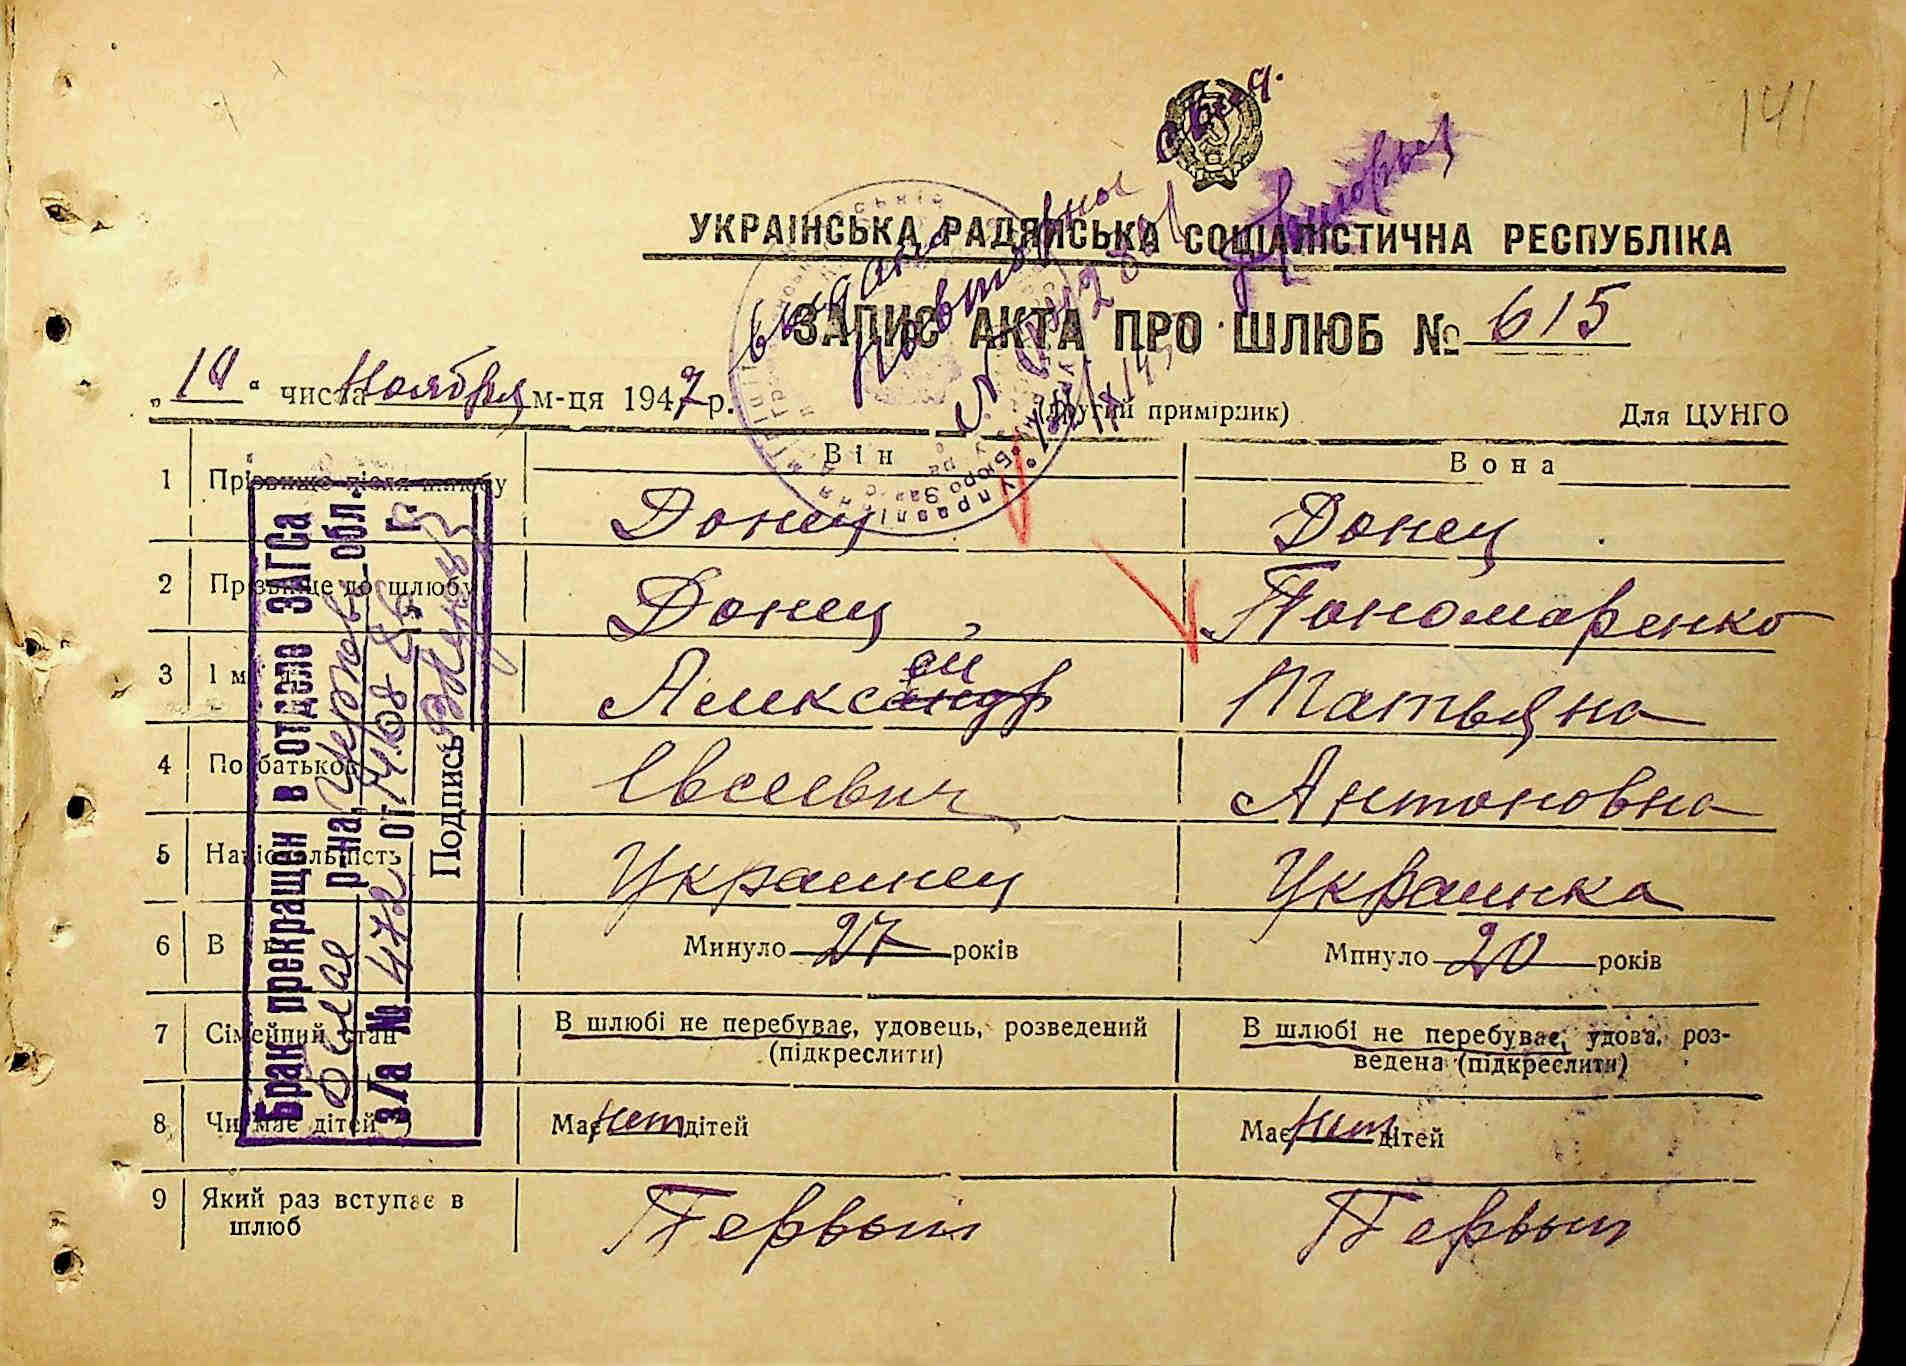 141
УКРАЇНСЬКА РАДЯНСЬКА СОЦІАЛІСТИЧНА РЕСПУБЛІКА
ЗАПИС АКТА ПРО ШЛЮБ № 615
„ 10 “ числа Ноября м-ця 1947 р.
(Другий примірник)
Для ЦУНГО
Він
Вона
1 Прізвище після шлюбу Донец Донец
2 Прізвище до шлюбу Донец Пономаренко
3 Ім'я Александр ей Татьяна
4 По батькові Евсеевич Антоновна
5 Національність Украинец Украинка
6 Вік Минуло 27 років Минуло 20 років
7 Сімейний стан В шлюбі не перебуває, удовець, розведений (підкреслити) В шлюбі не перебуває, удова, розведена (підкреслити)
8 Чи має дітей Має нет дітей Має нет дітей
9 Який раз вступає в шлюб Первый Первый
Брак прекращен в отделе ЗАГСа
р-на обл.
з/а № 472 от 14.08 86 г.
Подпись
выдано
повторное